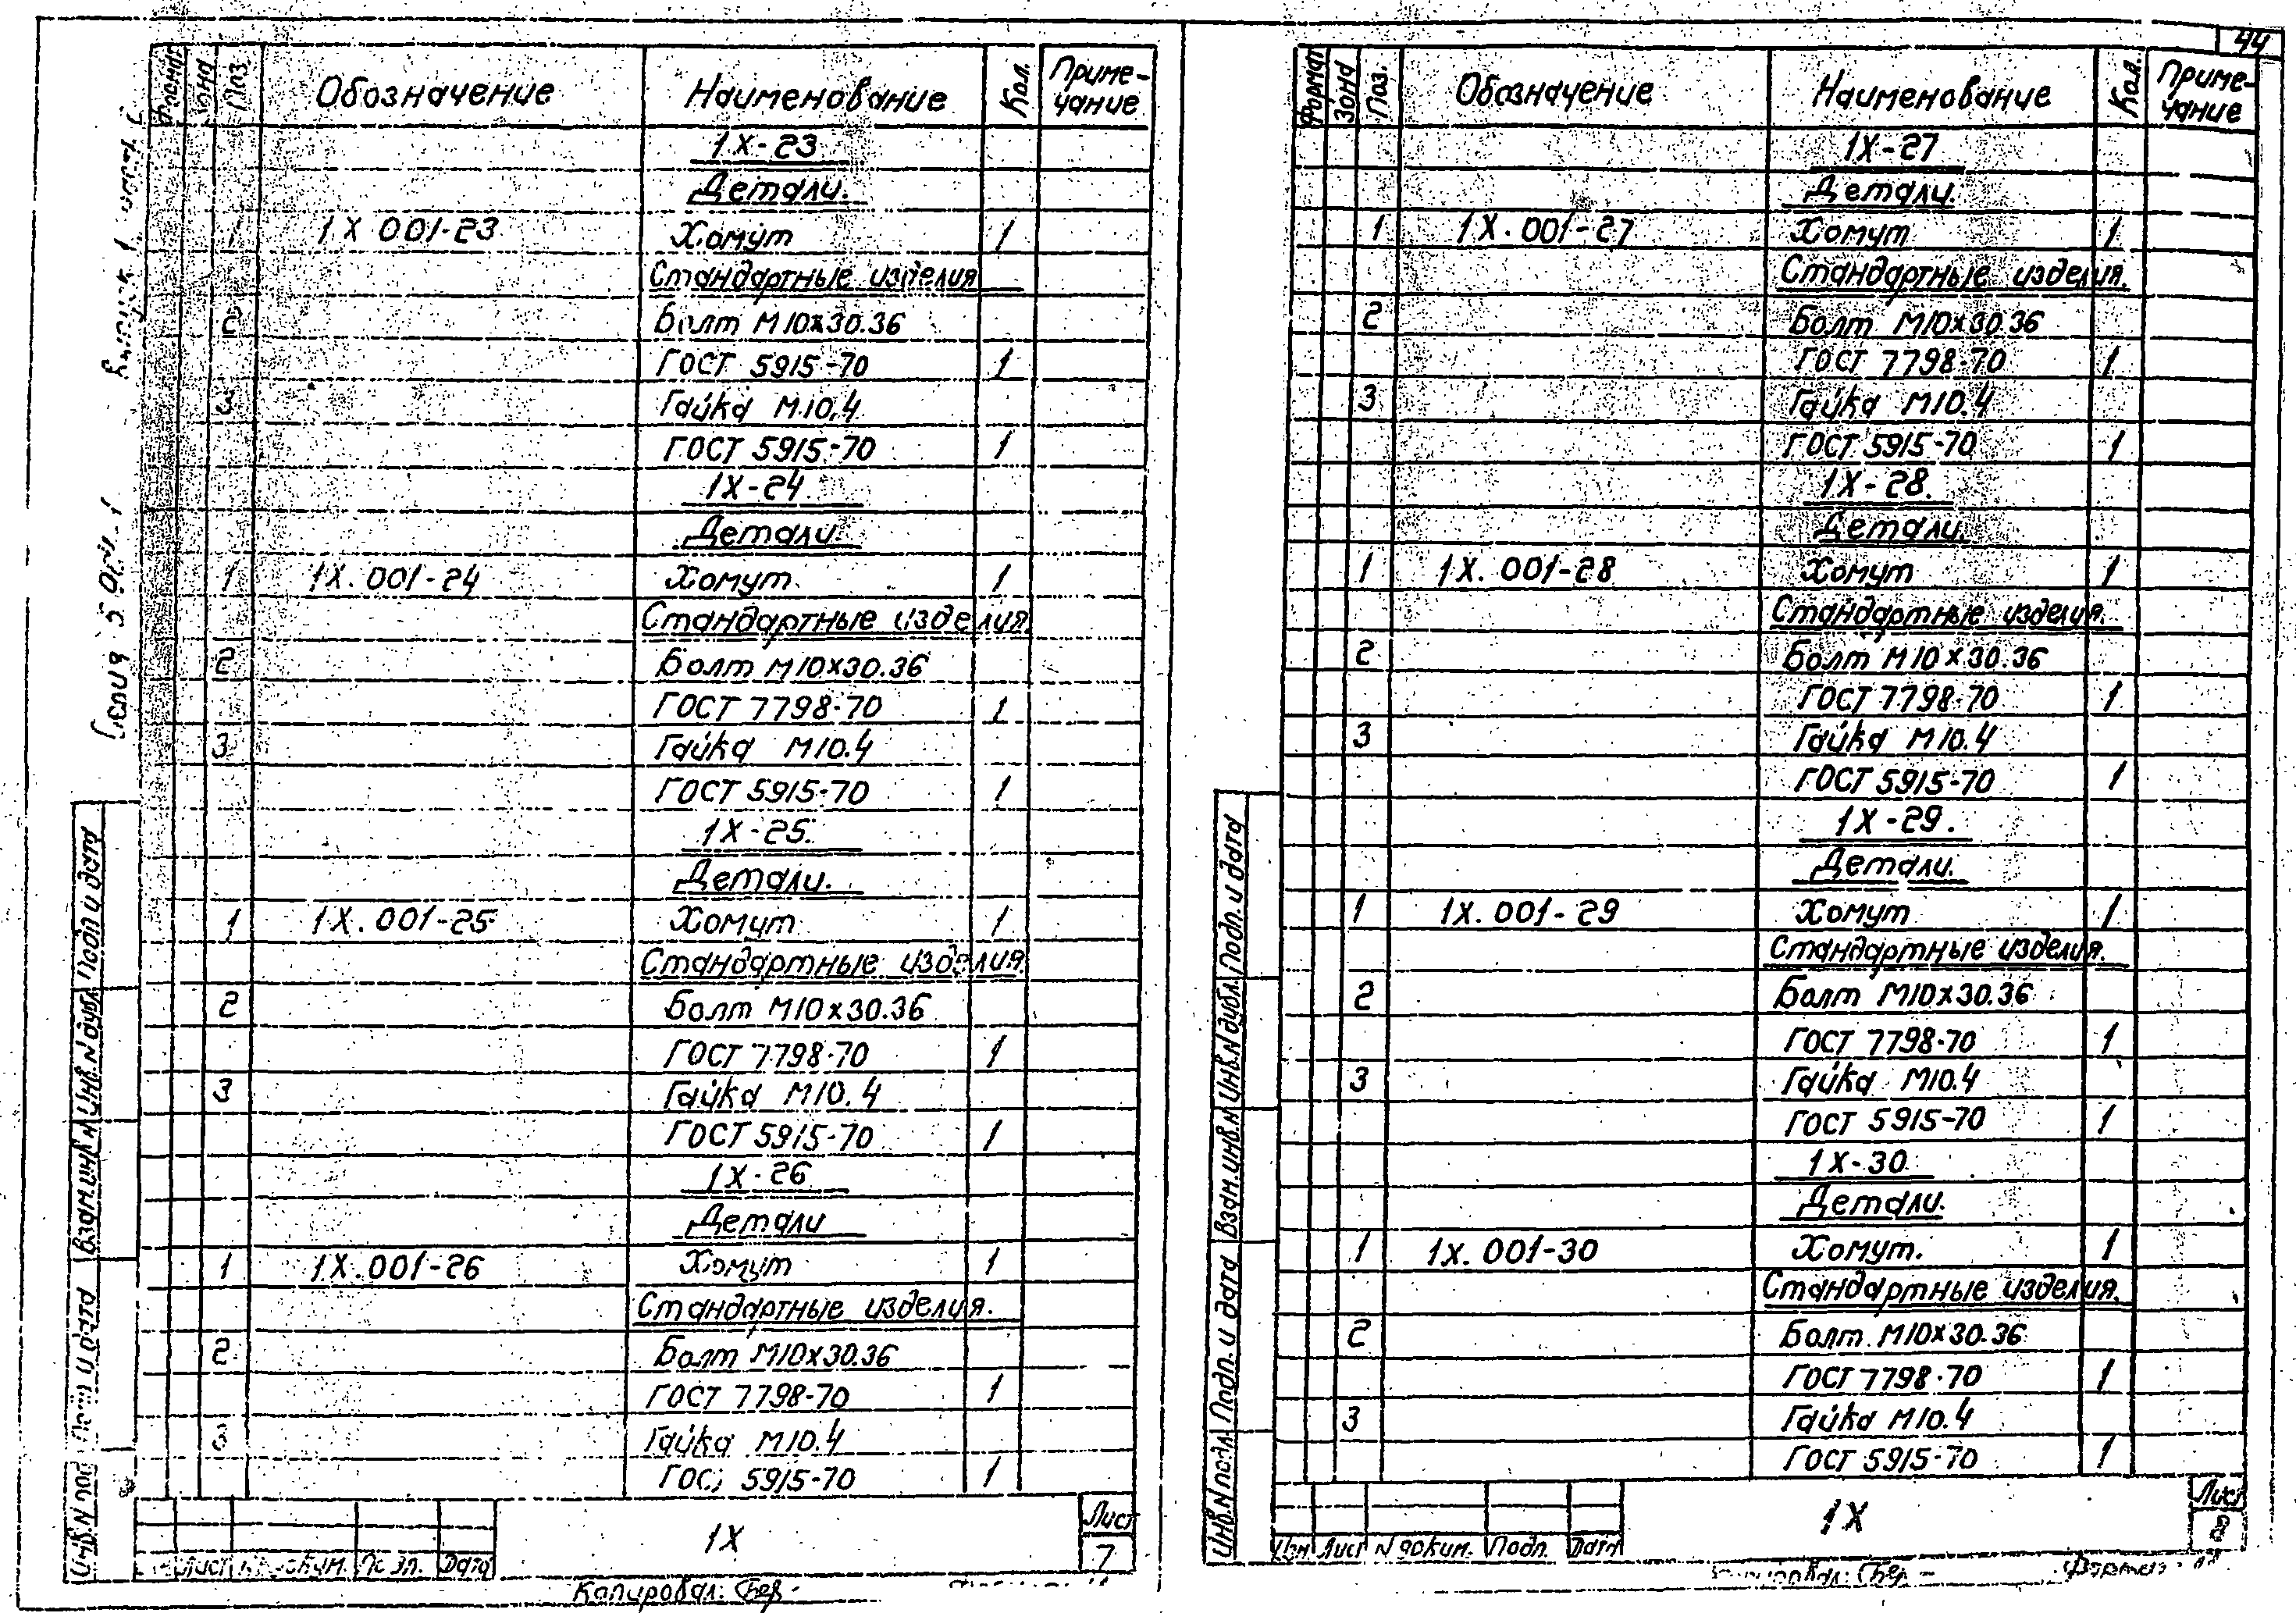 44
Формат Зона Поз. Обозначение Наименование Кол. Приме-
чание
1Х-23
Детали.
1 1Х 001-23 Хомут 1
Стандартные изделия
2 Болт М10х30.36
ГОСТ 5915-70 1
3 Гайка М10.4
ГОСТ 5915-70 1
1Х-24
Детали.
1 1Х. 001-24 Хомут 1
Стандартные изделия.
2 Болт М10х30.36
ГОСТ 7798-70 1
3 Гайка М10.4
ГОСТ 5915-70 1
1Х-25.
Детали.
1 1Х. 001-25 Хомут 1
Стандартные изделия.
2 Болт М10х30.36
ГОСТ 7798-70 1
3 Гайка М10.4
ГОСТ 5915-70 1
1Х-26
Детали
1 1Х.001-26 Хомут 1
Стандартные изделия.
2 Болт М10х30.36
ГОСТ 7798-70 1
3 Гайка М10.4
ГОСТ 5915-70 1
Лист
1Х
7
Лист Дата
Копировал:
Серия 5.
Выпуск 1
Подп и дата
Инв.N дубл.
Взам.инв.N
Подп и дата
Инв.N под
Формат Зона Поз. Обозначение Наименование Кол. Приме-
чание
1Х-27
Детали.
1 1Х. 001-27 Хомут 1
Стандартные изделия.
2 Болт М10х30.36
ГОСТ 7798-70 1
3 Гайка М10.4
ГОСТ 5915-70 1
1Х-28.
Детали.
1 1Х. 001-28 Хомут 1
Стандартные изделия.
2 Болт М10х30.36
ГОСТ 7798-70 1
3 Гайка М10.4
ГОСТ 5915-70 1
1Х-29.
Детали.
1 1Х. 001-29 Хомут 1
Стандартные изделия.
2 Болт М10х30.36
ГОСТ 7798-70 1
3 Гайка М10.4
ГОСТ 5915-70 1
1Х-30
Детали.
1 1Х. 001-30 Хомут. 1
Стандартные изделия.
2 Болт М10х30.36
ГОСТ 7798-70 1
3 Гайка М10.4
ГОСТ 5915-70 1
Лист
1Х
8
Изм Лист N докум. Подп. Дата
Формат
Подп. и дата
Инв.N дубл.
Взам.инв.N
Подп. и дата
Инв.N подл.